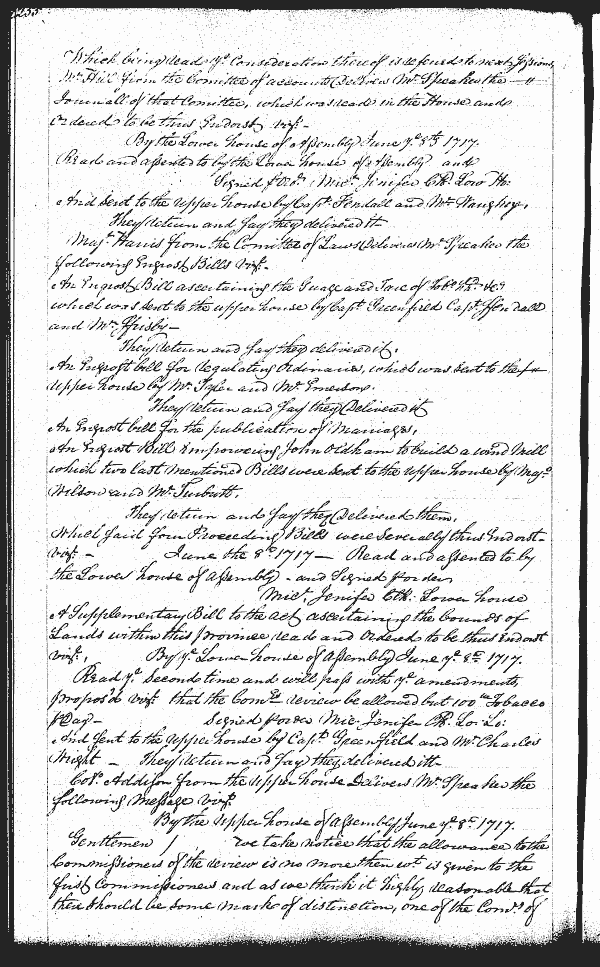 Which being read yᵉ Consideration thereof is deferred to next Sessions,
Mr. Hill from the Comittee of accounts Delivers Mr. Speaker the
Journall of that Comittee, which was read in the House and
Ordered to be thus Endorst vizt.
By the Lower house of Assembly June yᵉ 8th 1717.
Read and assented to by the Lower house of assembly and
Signed p Ordr. Micl. Jenifer Clk. Low Ho:
And Sent to the upper house by Capt. Fendall and Mr. Waughop.
They return and say they delivered it
Majr. Harris from the Comittee of Laws Delivers Mr. Speaker the
following Engrost Bills vizt.
An Engrost Bill ascertaining the Guage and Tare of Tobo. hhds. &c.
which was sent to the upper house by Capt. Greenfield Capt. Ffendall
and Mr. Ffrisby
They return and say they delivered it.
An Engrost bill for regulating Ordinaries, which was sent to the
upper house by Mr. Tyler and Mr. Emerson.
They return and say they Delivered it
An Engrost bill for the publication of Mariages,
An Engrost Bill Empowering John Oldham to build a wind Mill
which two last Mentioned Bills were sent to the upper house by Majr.
Wilson and Mr. Turbutt.
They return and say they Delivered them.
Which said four Proceeding Bills were severally thus Endorst
vizt. - June the 8th 1717 - Read and assented to by
the Lower house of Assembly - and Signed p order
Micl. Jenifer Clk. Lower house
A Supplementary Bill to the act ascertaining the bounds of
Lands within this Province read and Ordered to be thus Endorst
vizt. By yᵉ Lower house of Assembly June yᵉ 8th 1717.
Read yᵉ Second time and will pass with yᵉ amendments
propos'd vizt. that the Comrs. review be allowed but 100 lb Tobacco
p Day - Signed p order Mic. Jenifer Clk. Lo: Ho:
And Sent to the upper house by Capt. Greenfield and Mr. Charles
Wright - They return and say they delivered it
Col. Addison from the upper house Delivers Mr. Speaker the
following Message vizt.
By the upper house of Assembly June yᵉ 8th 1717.
Gentlemen / We take notice that the allowance to the
Commissioners of the review is no more then wt. is given to the
first Commissioners and as we think it highly reasonable that
their should be some mark of distinction, one of the Comrs. of